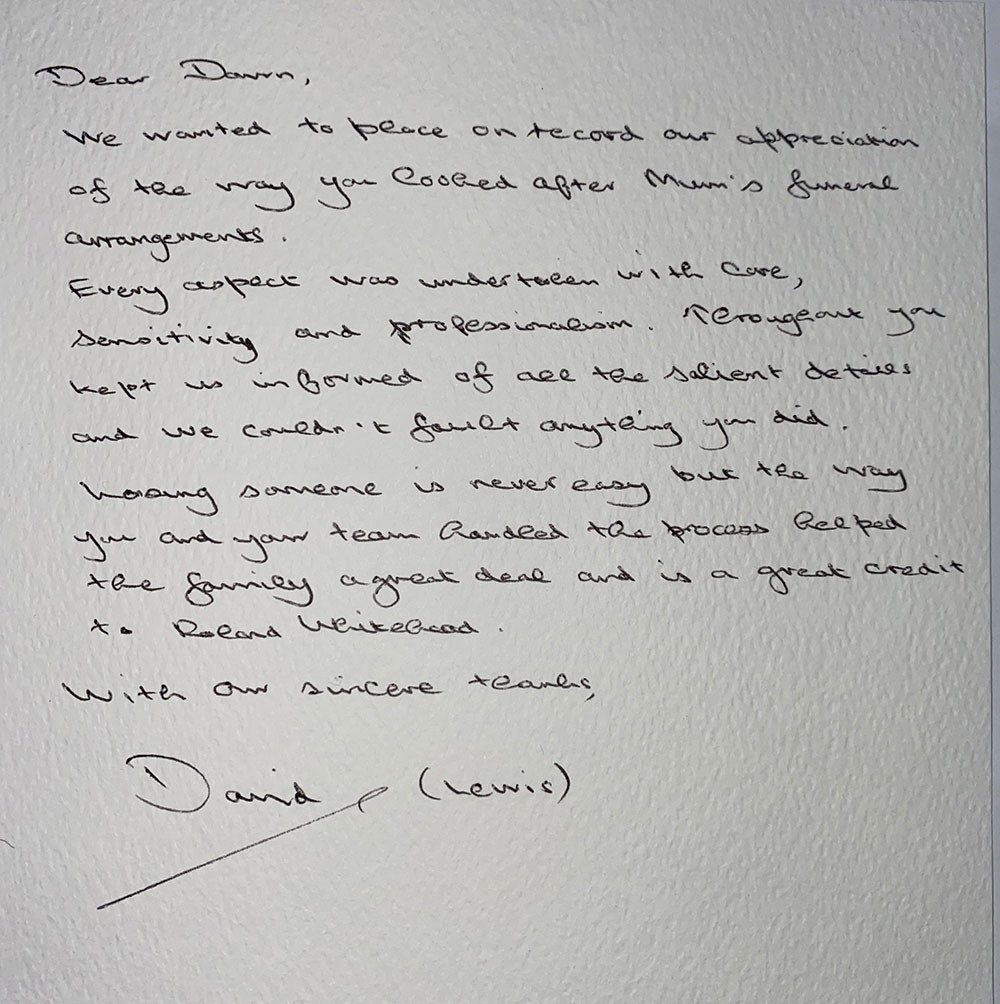 Dear Dawn,
We wanted to place on record our appreciation
of the way you looked after Mum's funeral
arrangements.
Every aspect was undertaken with care,
sensitivity and professionalism. Throughout you
kept us informed of all the salient details
and we couldn't fault anything you did.
Losing someone is never easy but the way
you and your team handled the process helped
the family a great deal and is a great credit
to Roland Whitehead.
With our sincere thanks,
David (Lewis)